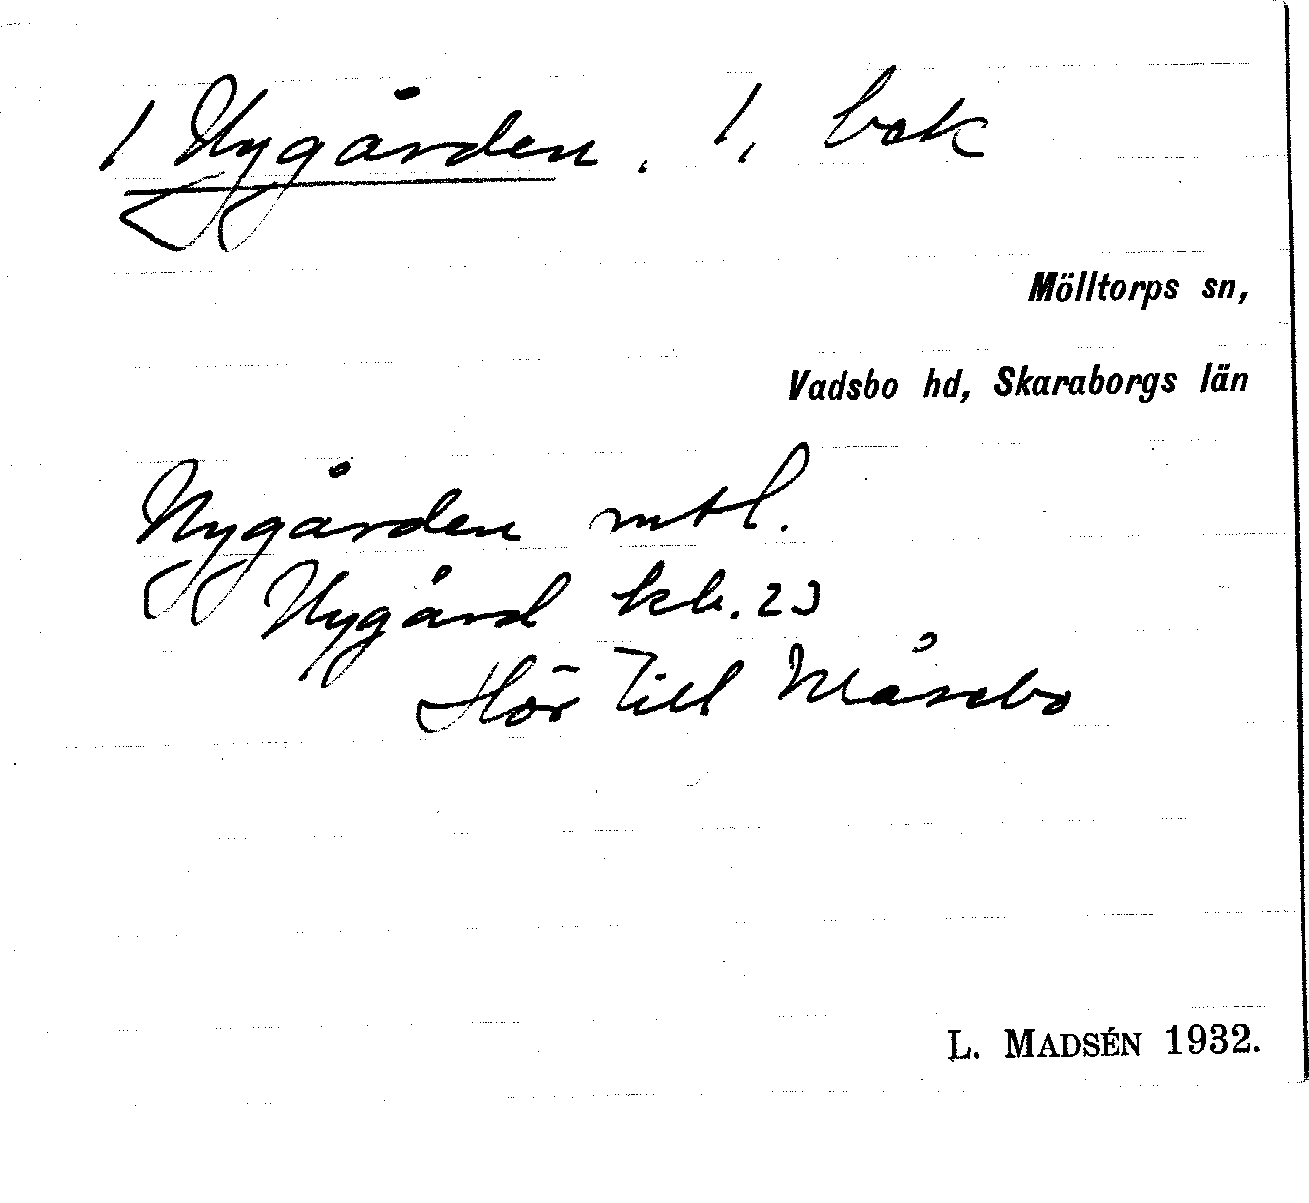 1 Nygården. 1, bok
Mölltorps sn,
Vadsbo hd, Skaraborgs län
Nygården mtl.
Nygård kb. 23
Hör till Måsebo
L. MADSÉN 1932.